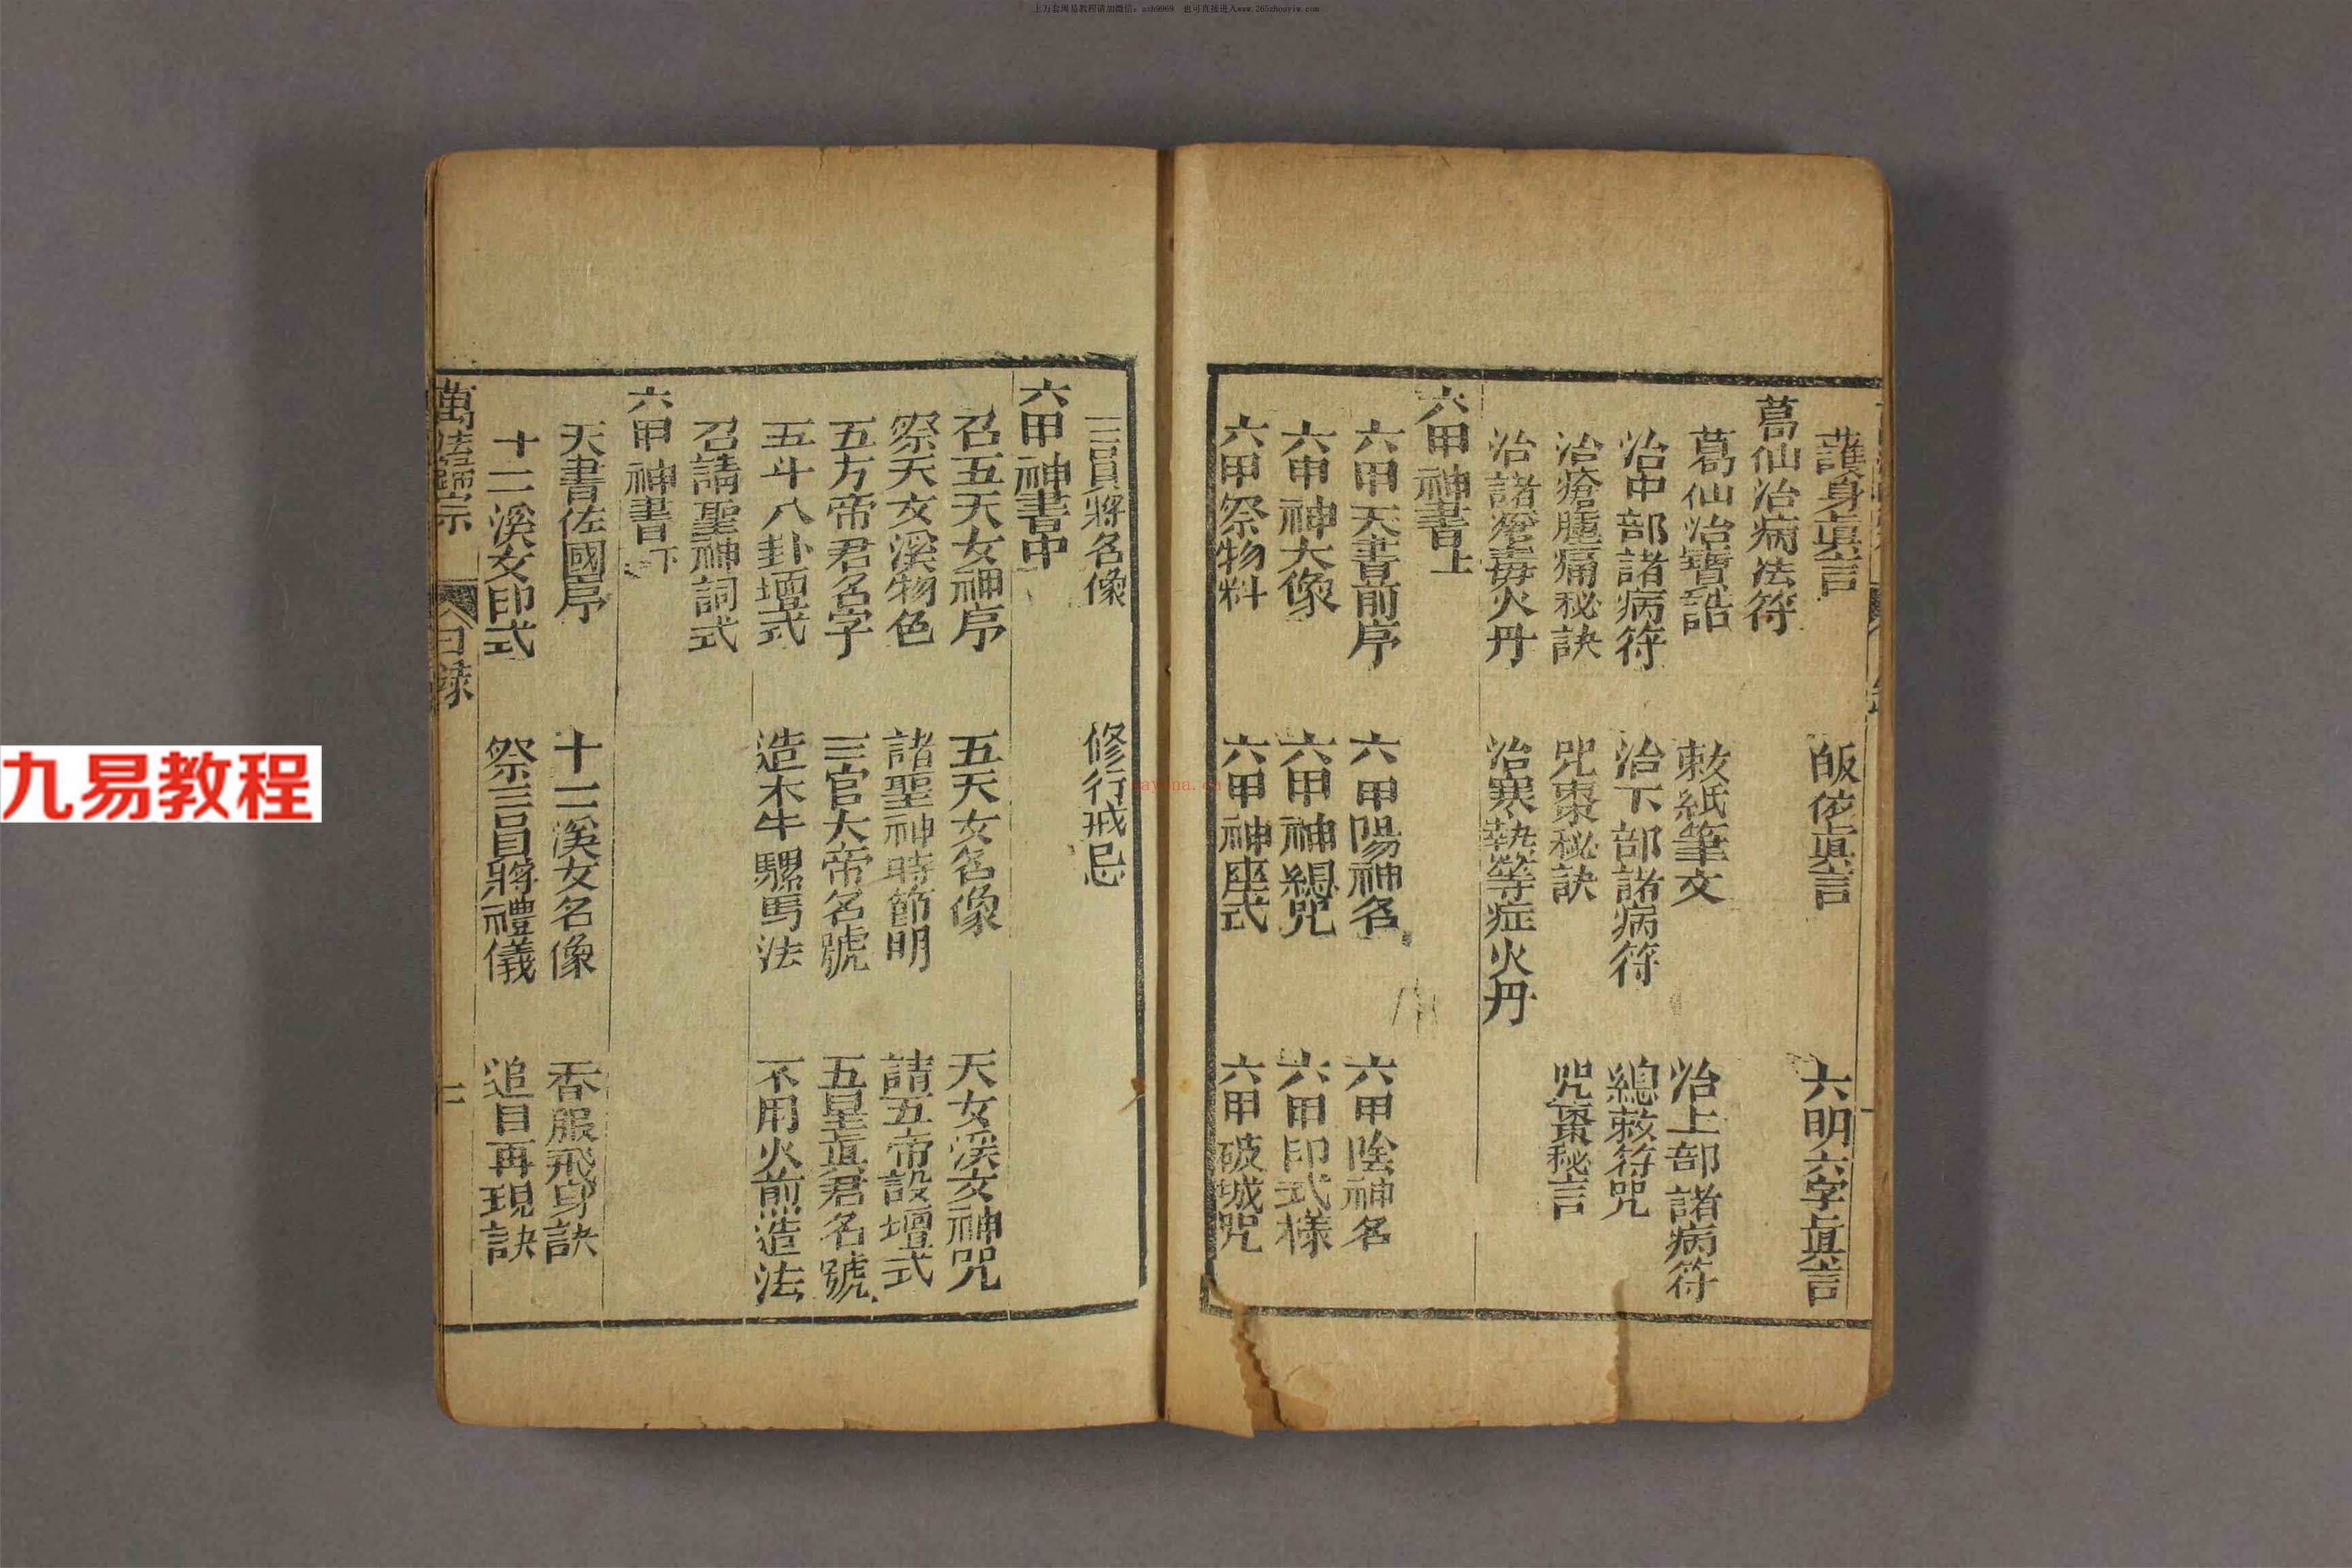 上万套周易教程请加微信：azh9969　也可直接进入www.265zhouyiw.com
護身眞言　皈依眞言　六明六字眞言
葛仙治病法符
葛仙治寶誥　敕紙筆文　治上部諸病符
治中部諸病符　治下部諸病符　總敕符咒
治瘡腫痛秘訣　咒棗秘訣　咒棗秘言
治諸瘡毒火丹　治寒熱等症火丹
六甲神書上
六甲天書前序　六甲陽神名　六甲陰神名
六甲神大像　六甲神總咒　六甲印式樣
六甲祭物料　六甲神座式　六甲破城咒
三員將名像　修行戒忌
六甲神書中
召五天女神序　五天女名像　天女溪女神咒
祭天女溪物色　諸聖神時節明　請五帝設壇式
五方帝君名字　三官大帝名號　五星眞君名號
五斗八卦壇式　造木牛騾馬法　不用火煎造法
召請聖神詞式
六甲神書下
天書佐國序　十二溪女名像　香服飛身訣
十二溪女印式　祭三員將禮儀　追目再現訣
萬法歸宗　目錄　二
九易教程